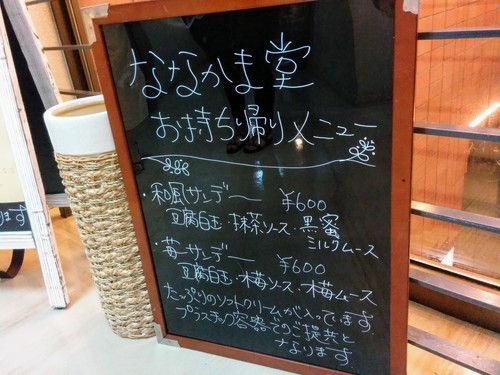 ななかま堂
お持ち帰りメニュー
・和風サンデー ¥600
豆腐白玉・抹茶ソース・黒蜜
ミルクムース
・苺サンデー ¥600
豆腐白玉・苺ソース・苺ムース
たっぷりのソフトクリームが入っています。
プラスチック容器でのご提供と
なります
ます